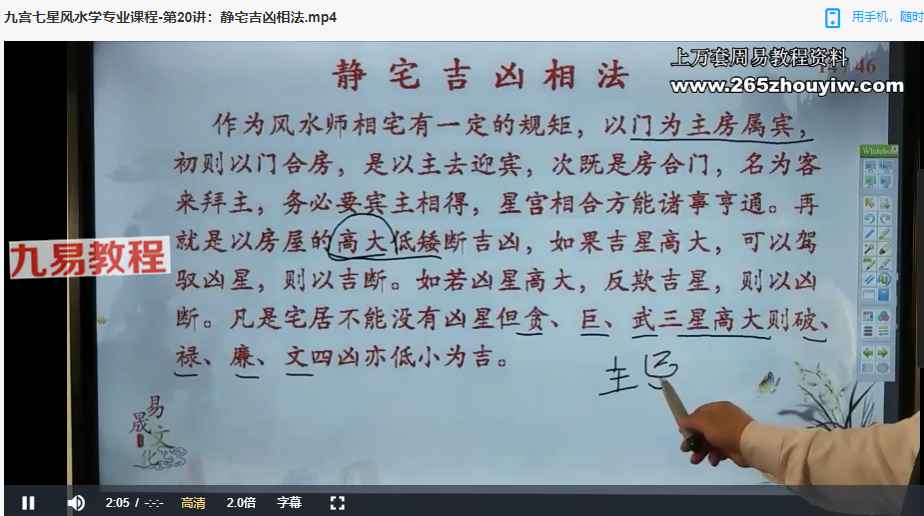 九宫七星风水学专业课程-第20讲：静宅吉凶相法.mp4
用手机，随时
上万套周易教程资料
46
www.265zhouyiw.com
静宅吉凶相法
作为风水师相宅有一定的规矩，以门为主房属宾，
初则以门合房，是以主去迎宾，次既是房合门，名为客
来拜主，务必要宾主相得，星宫相合方能诸事亨通。再
就是以房屋的高大低矮断吉凶，如果吉星高大，可以驾
驭凶星，则以吉断。如若凶星高大，反欺吉星，则以凶
断。凡是宅居不能没有凶星但贪、巨、武三星高大则破、
禄、廉、文四凶亦低小为吉。
九易教程
主
易晟文化
2:05 / -:-:-
高清
2.0倍
字幕